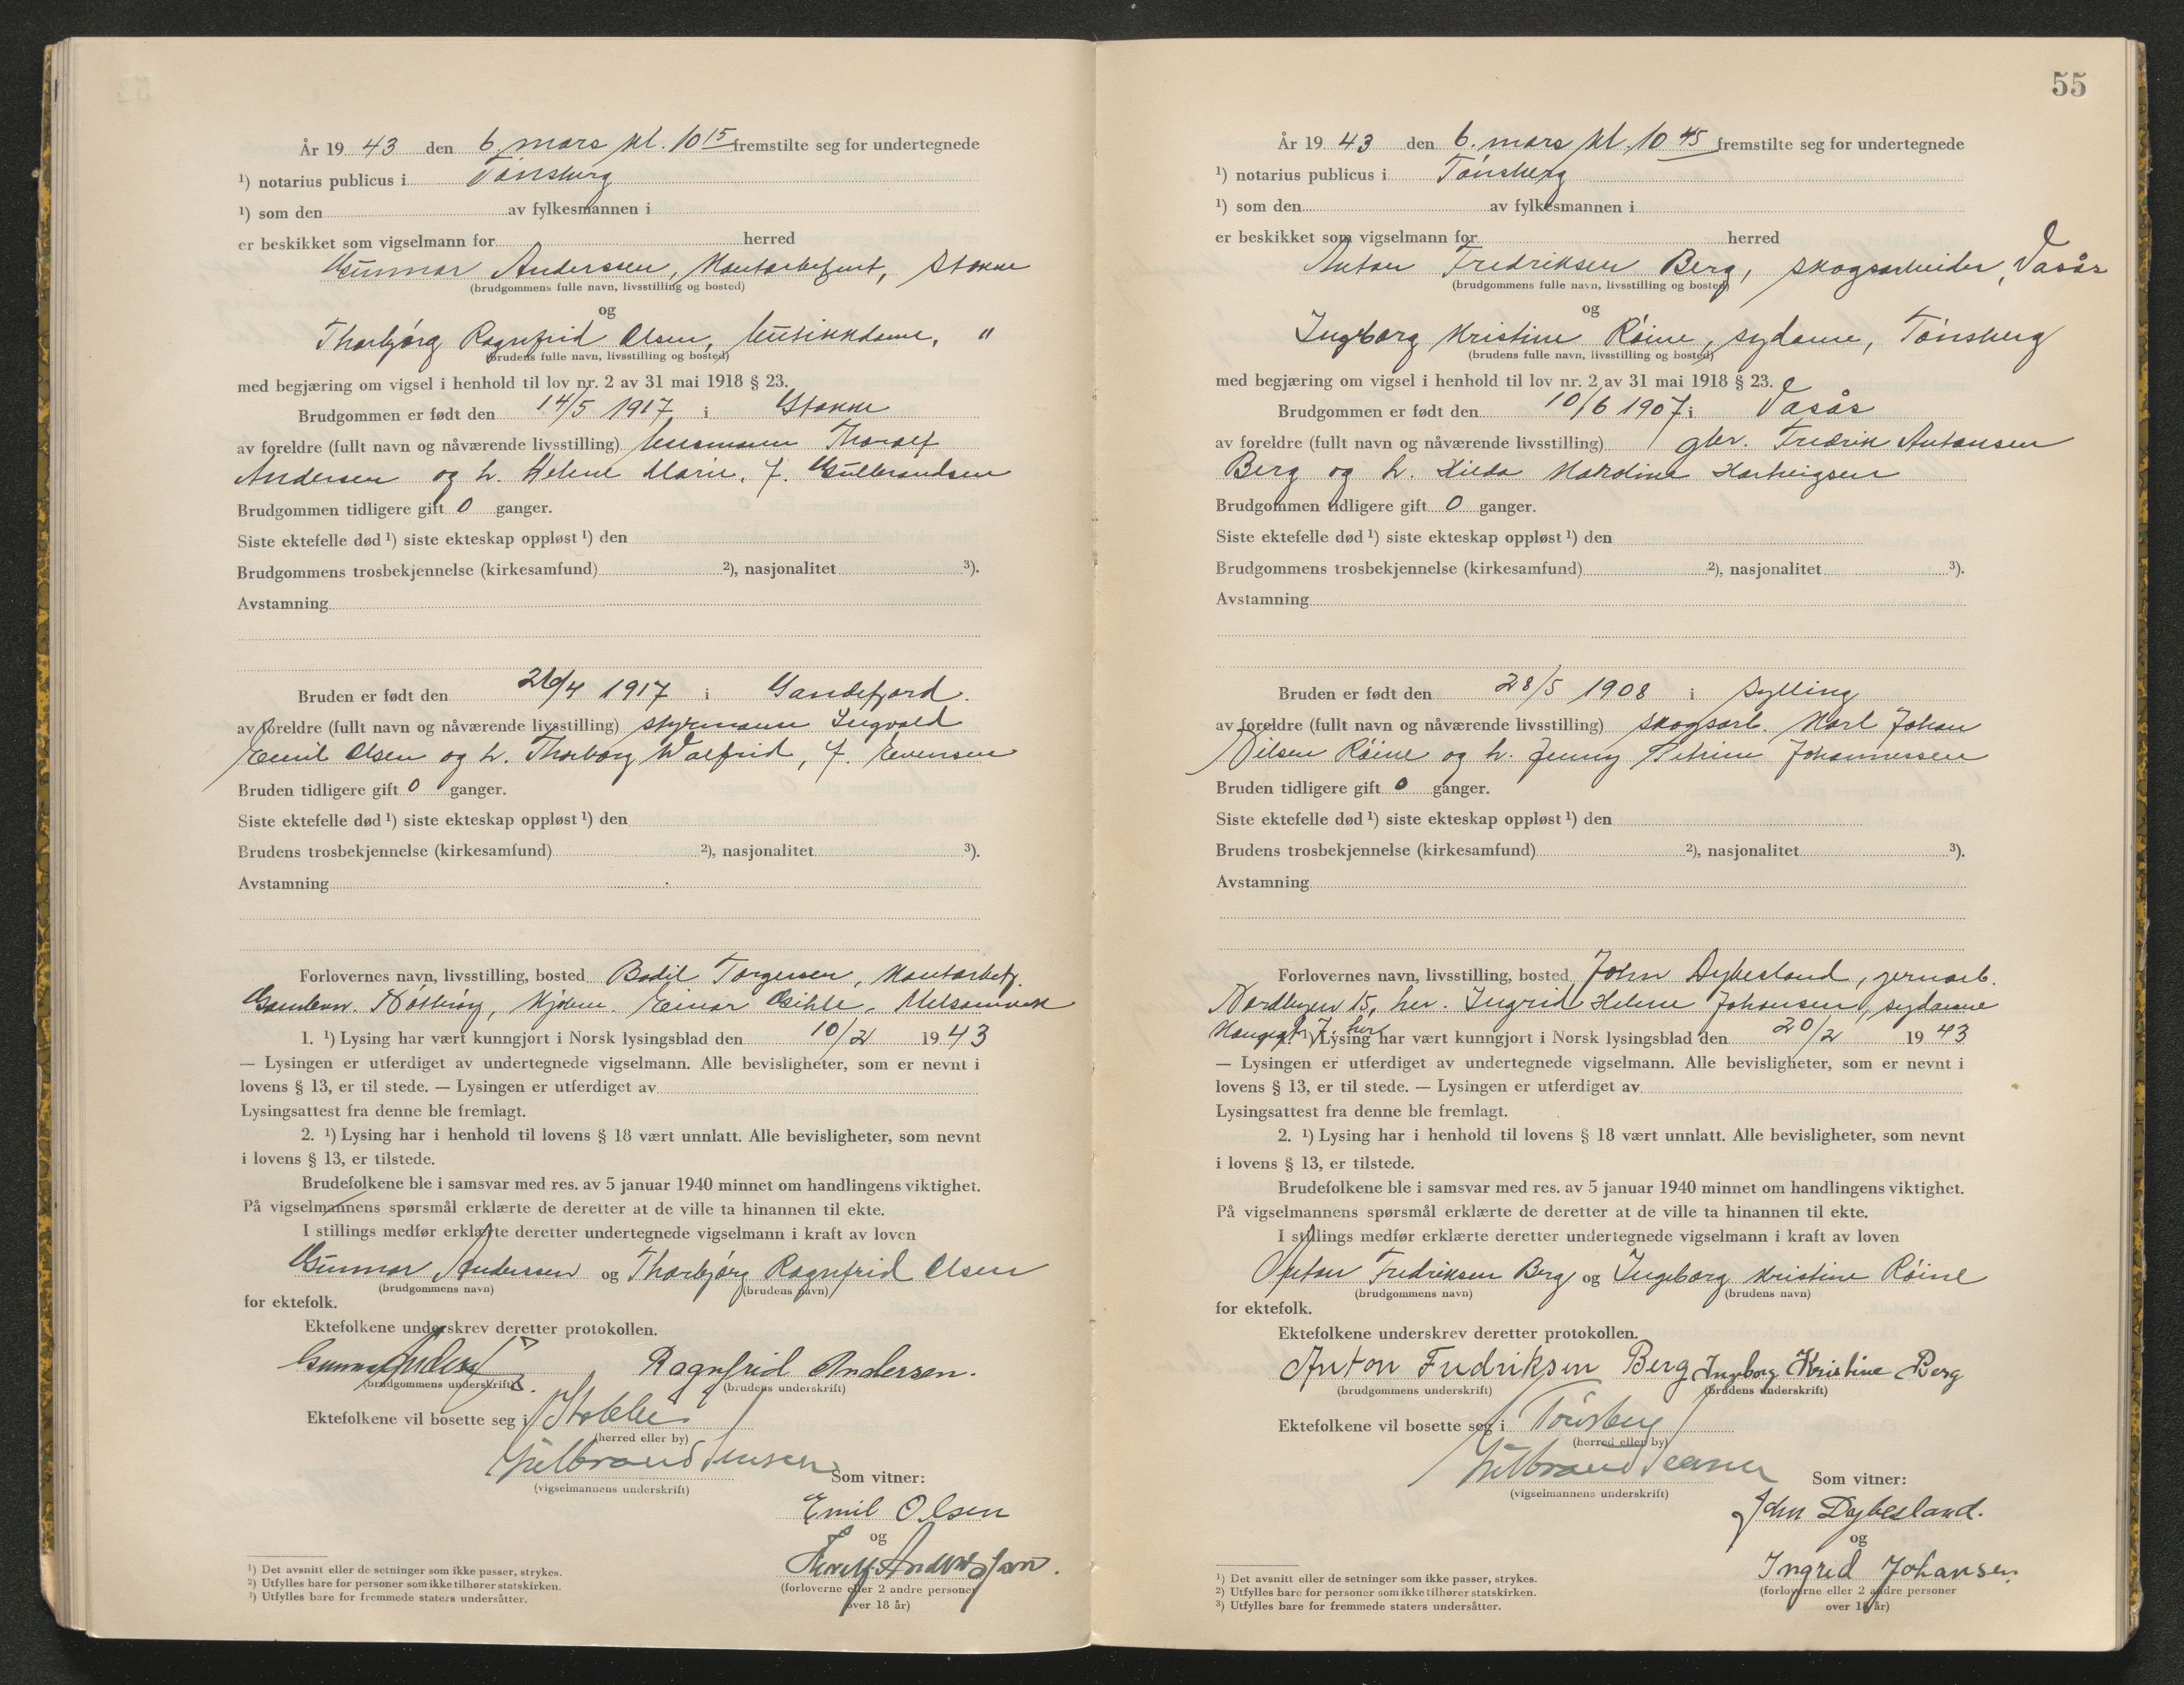 År 1943 den 6 mars kl. 10 15 fremstilte seg for undertegnede
¹) notarius publicus i Tønsberg
¹) som den av fylkesmannen i
er beskikket som vigselmann for herred
Gunnar Anderssen, Kontorbetjent, Stokke
(brudgommens fulle navn, livsstilling og bosted)
og
Thorbjørg Ragnfrid Olsen, butikkdame, "
(brudens fulle navn, livsstilling og bosted)
med begjæring om vigsel i henhold til lov nr. 2 av 31 mai 1918 § 23.
Brudgommen er født den 14/5 1917 i Stokke
av foreldre (fullt navn og nåværende livsstilling) Thoralf
Andersen og h. Helene Marie, f. Gulbrandsen
Brudgommen tidligere gift 0 ganger.
Siste ektefelle død ¹) siste ekteskap oppløst ¹) den
Brudgommens trosbekjennelse (kirkesamfund) ²), nasjonalitet ³).
Avstamning
Bruden er født den 26/4 1917 i Sandefjord.
av foreldre (fullt navn og nåværende livsstilling) styrmann Ingvald
Emil Olsen og h. Thorborg Valfrid, f. Evensen
Bruden tidligere gift 0 ganger.
Siste ektefelle død ¹) siste ekteskap oppløst ¹) den
Brudens trosbekjennelse (kirkesamfund) ²), nasjonalitet ³).
Avstamning
Forlovernes navn, livsstilling, bosted Bodil Torgersen, Kontorbetj.
Nøtterøy, Einar Gihle, Melsomvik
1. ¹) Lysing har vært kunngjort i Norsk lysingsblad den 10/2 1943
— Lysingen er utferdiget av undertegnede vigselmann. Alle bevisligheter, som er nevnt i
lovens § 13, er til stede. — Lysingen er utferdiget av
Lysingsattest fra denne ble fremlagt.
2. ¹) Lysing har i henhold til lovens § 18 vært unnlatt. Alle bevisligheter, som nevnt
i lovens § 13, er tilstede.
Brudefolkene ble i samsvar med res. av 5 januar 1940 minnet om handlingens viktighet.
På vigselmannens spørsmål erklærte de deretter at de ville ta hinannen til ekte.
I stillings medfør erklærte deretter undertegnede vigselmann i kraft av loven
Gunnar Anderssen og Thorbjørg Ragnfrid Olsen
(brudgommens navn) (brudens navn)
for ektefolk.
Ektefolkene underskrev deretter protokollen.
Gunnar Ragnfrid Andersen.
(brudgommens underskrift) (brudens underskrift)
Ektefolkene vil bosette seg i Stokke
(herred eller by)
Gulbrand Jensen
Som vitner:
(vigselmannens underskrift)
Emil Olsen
og
Thoralf Anderssen.
(forloverne eller 2 andre personer
over 18 år)
¹) Det avsnitt eller de setninger som ikke passer, strykes.
²) Utfylles bare for personer som ikke tilhører statskirken.
³) Utfylles bare for fremmede staters undersåtter.
55
År 1943 den 6. mars kl. 10 45 fremstilte seg for undertegnede
¹) notarius publicus i Tønsberg
¹) som den av fylkesmannen i
er beskikket som vigselmann for herred
Anton Fredriksen Berg, skogsarbeider, Vasås
(brudgommens fulle navn, livsstilling og bosted)
og
Ingeborg Kristine Røine, sydame, Tønsberg
(brudens fulle navn, livsstilling og bosted)
med begjæring om vigsel i henhold til lov nr. 2 av 31 mai 1918 § 23.
Brudgommen er født den 10/6 1907 i Vasås
av foreldre (fullt navn og nåværende livsstilling) gbr. Fredrik Antonsen
Berg og h. Hilda Hartvigsen
Brudgommen tidligere gift 0 ganger.
Siste ektefelle død ¹) siste ekteskap oppløst ¹) den
Brudgommens trosbekjennelse (kirkesamfund) ²), nasjonalitet ³).
Avstamning
Bruden er født den 28/5 1908 i Sylling
av foreldre (fullt navn og nåværende livsstilling) skogsarb. Karl Johan
Nilsen Røine og h. Jenny Petrine Johannessen
Bruden tidligere gift 0 ganger.
Siste ektefelle død ¹) siste ekteskap oppløst ¹) den
Brudens trosbekjennelse (kirkesamfund) ²), nasjonalitet ³).
Avstamning
Forlovernes navn, livsstilling, bosted John Dybesland, jernarb.
Nordbyen 15, her. Ingrid Helene Johansen, sydame
7. her
¹) Lysing har vært kunngjort i Norsk lysingsblad den 20/2 1943
— Lysingen er utferdiget av undertegnede vigselmann. Alle bevisligheter, som er nevnt i
lovens § 13, er til stede. — Lysingen er utferdiget av
Lysingsattest fra denne ble fremlagt.
2. ¹) Lysing har i henhold til lovens § 18 vært unnlatt. Alle bevisligheter, som nevnt
i lovens § 13, er tilstede.
Brudefolkene ble i samsvar med res. av 5 januar 1940 minnet om handlingens viktighet.
På vigselmannens spørsmål erklærte de deretter at de ville ta hinannen til ekte.
I stillings medfør erklærte deretter undertegnede vigselmann i kraft av loven
Anton Fredriksen Berg og Ingeborg Kristine Røine
(brudgommens navn) (brudens navn)
for ektefolk.
Ektefolkene underskrev deretter protokollen.
Anton Fredriksen Berg Ingeborg Kristine Berg
(brudgommens underskrift) (brudens underskrift)
Ektefolkene vil bosette seg i Tønsberg
(herred eller by)
Gulbrand Jensen
Som vitner:
(vigselmannens underskrift)
John Dybesland.
og
Ingrid Johansen.
(forloverne eller 2 andre personer
over 18 år)
¹) Det avsnitt eller de setninger som ikke passer, strykes.
²) Utfylles bare for personer som ikke tilhører statskirken.
³) Utfylles bare for fremmede staters undersåtter.